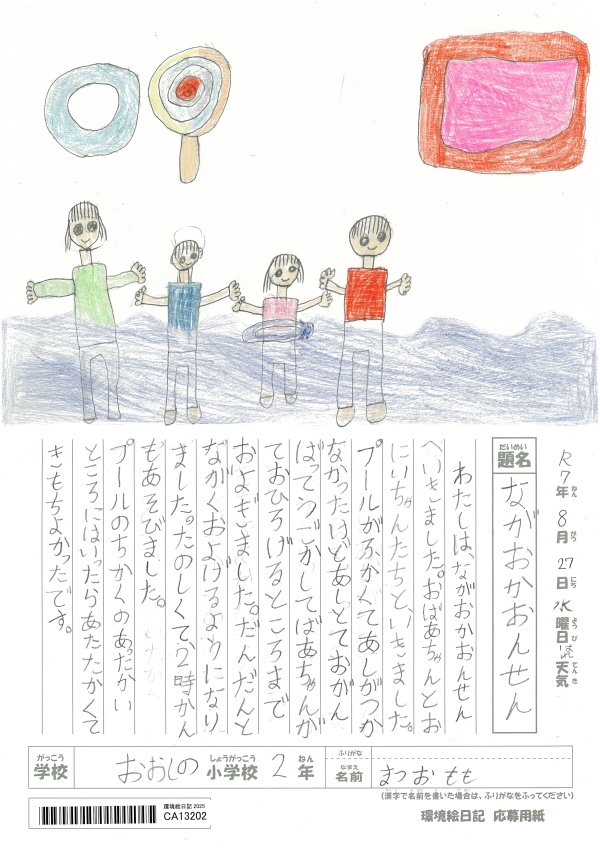 R7年ねん8月がつ27日にち水曜日ようび 天気てんき
だいめい
題名 ながおかおんせん
わたしは、ながおかおんせん
へいきました。おばあちゃんとお
にいちゃんたちと、いきました。
プールがふかくてあしがつか
なかったけどあしとておがん
ばってうごかしてばあちゃんが
ておひろげるところまで
およぎました。だんだんと
ながくおよげるようになり
ました。たのしくて、2時かん
もあそびました。
プールのちかくのあったかい
ところにはいったらあたたかくて
きもちよかったです。
がっこう しょうがっこう ねん
学校 おおしの 小学校 2年
ふりがな
なまえ
名前 まつお もも
(漢字で名前を書いた場合は、ふりがなをふってください)
環境絵日記 2025
CA13202
環境絵日記 応募用紙